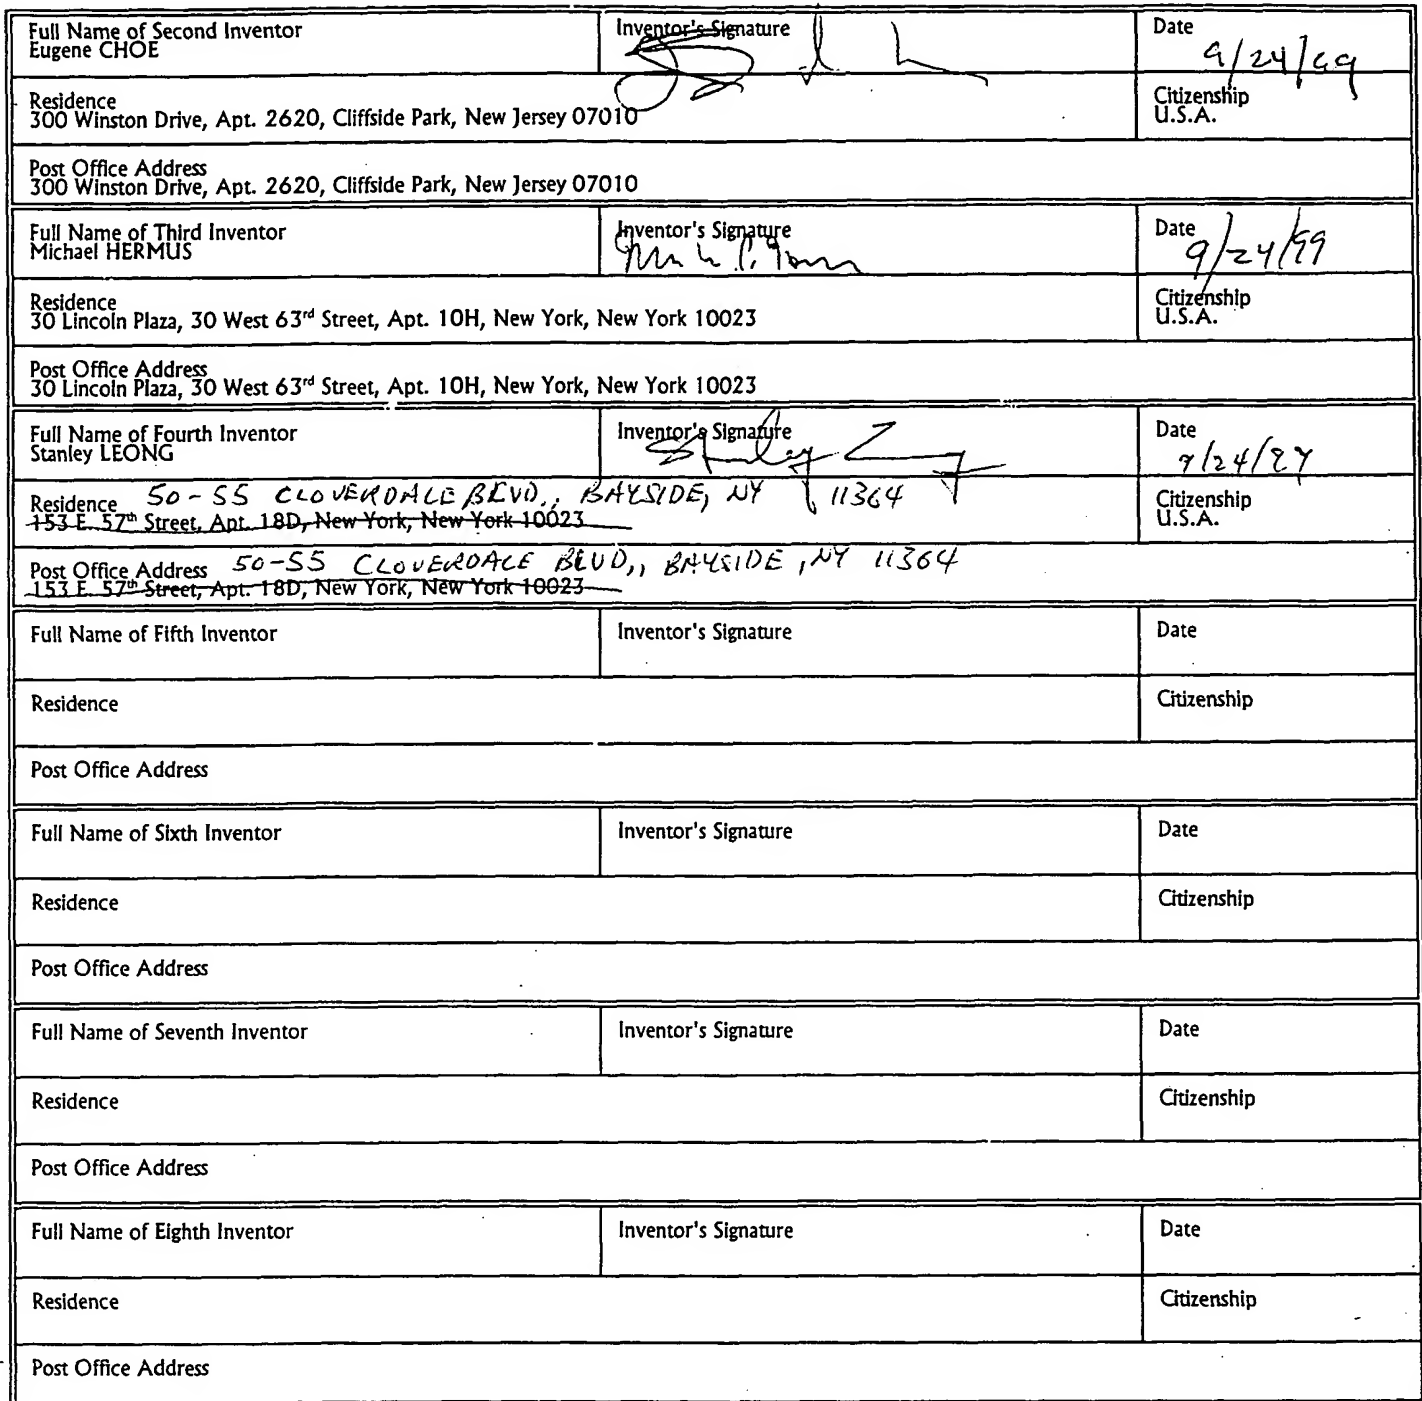 Full Name of Second Inventor
Eugene CHOE
Inventor's Signature
Date
9/24/99
Residence
300 Winston Drive, Apt. 2620, Cliffside Park, New Jersey 07010
Citizenship
U.S.A.
Post Office Address
300 Winston Drive, Apt. 2620, Cliffside Park, New Jersey 07010
Full Name of Third Inventor
Michael HERMUS
Inventor's Signature
Date
9/24/99
Residence
30 Lincoln Plaza, 30 West 63rd Street, Apt. 10H, New York, New York 10023
Citizenship
U.S.A.
Post Office Address
30 Lincoln Plaza, 30 West 63rd Street, Apt. 10H, New York, New York 10023
Full Name of Fourth Inventor
Stanley LEONG
Inventor's Signature
Date
Residence 50-55 CLOVERDALE BLVD., BAYSIDE, NY 11364
153 E. 57th Street, Apt. 18D, New York, New York 10023
Citizenship
U.S.A.
Post Office Address 50-55 CLOVERDALE BLVD,, BAYSIDE, NY 11364
153 E. 57th Street, Apt. 18D, New York, New York 10023
Full Name of Fifth Inventor
Inventor's Signature
Date
Residence
Citizenship
Post Office Address
Full Name of Sixth Inventor
Inventor's Signature
Date
Residence
Citizenship
Post Office Address
Full Name of Seventh Inventor
Inventor's Signature
Date
Residence
Citizenship
Post Office Address
Full Name of Eighth Inventor
Inventor's Signature
Date
Residence
Citizenship
Post Office Address